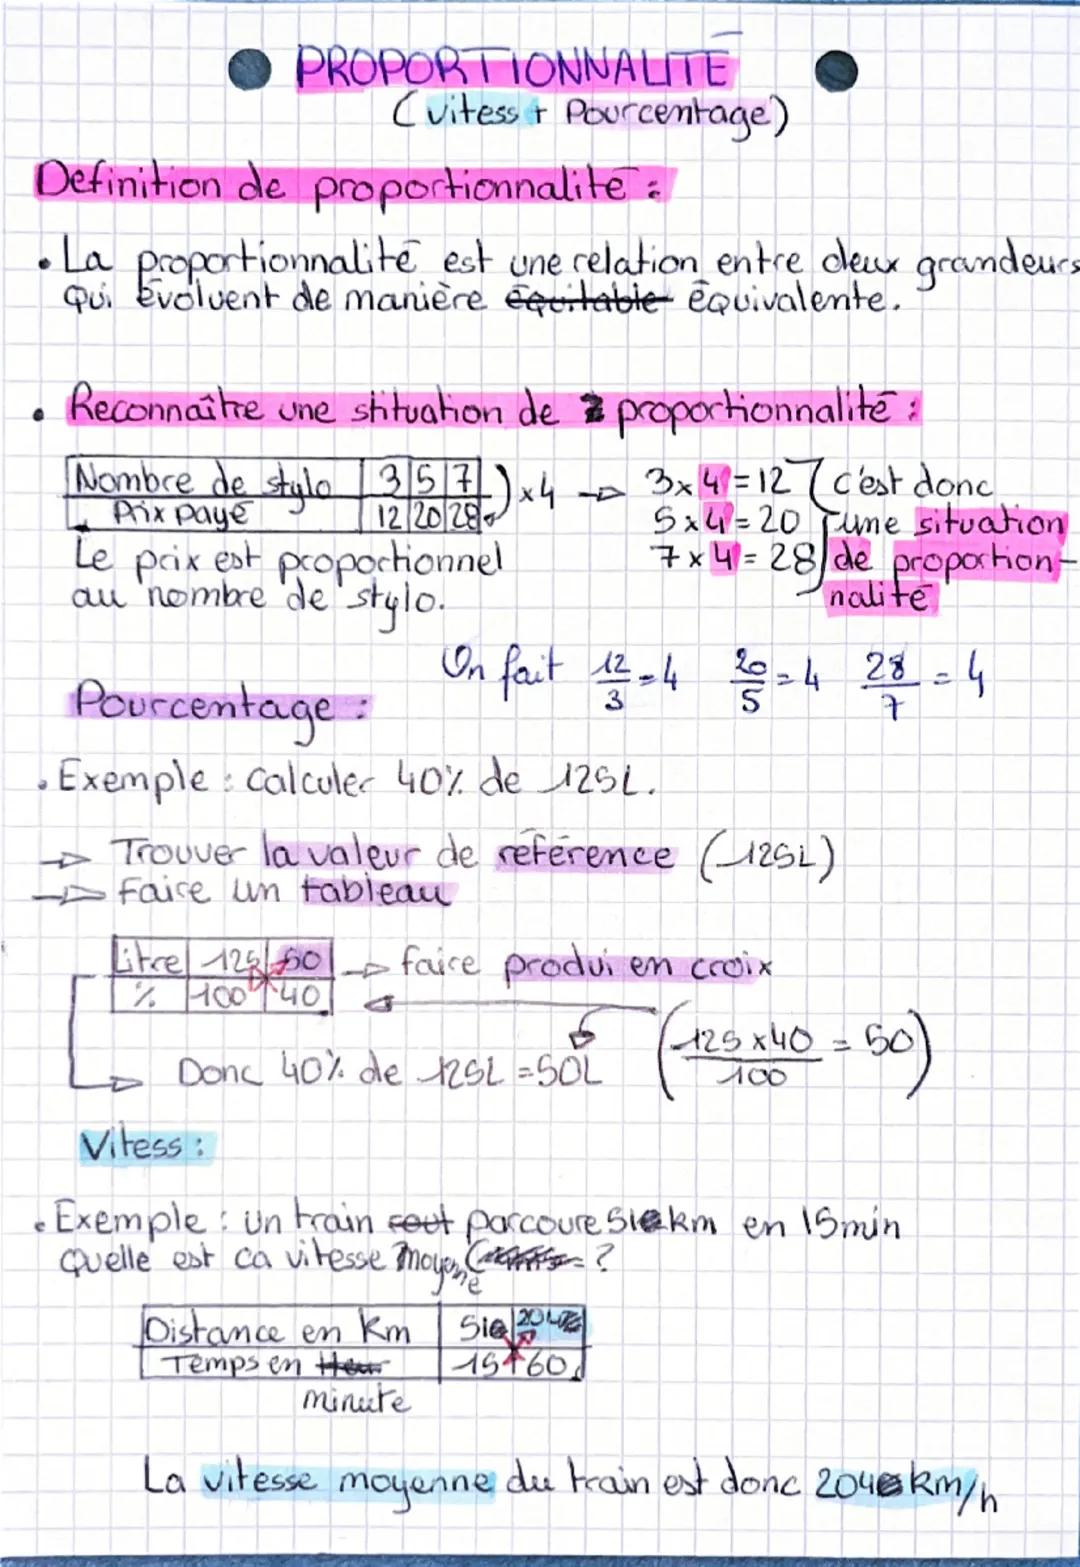 PROPORTIONNALITÉ
(vitess + Pourcentage)
Definition de proportionnalité :
• La proportionnalité est une relation entre deux grandeurs
qui évoluent de manière équitable équivalente.
• Reconnaître une stituation de proportionnalité :
Nombre de stylo 3 5 7
Prix payé 12 20 28
) x4 → 3x4=12
5x4=20
7x4=28
c'est donc
une situation
de proportion-
nalité
Le prix est proportionnel
au nombre de stylo.
On fait 12/3=4 20/5=4 28/7=4
Pourcentage :
• Exemple : Calculer 40% de 125L.
→ Trouver la valeur de référence (125L)
→ Faire un tableau
Litre 125 50
% 100 40
→ faire produi en croix
(125x40/100 = 50)
Donc 40% de 125L = 50L
Vitess :
• Exemple : un train parcoure 51 km en 15min
Quelle est ca vitesse moyenne ?
Distance en Km 51 204
Temps en Heur 15 60
minute
La vitesse moyenne du train est donc 204 km/h